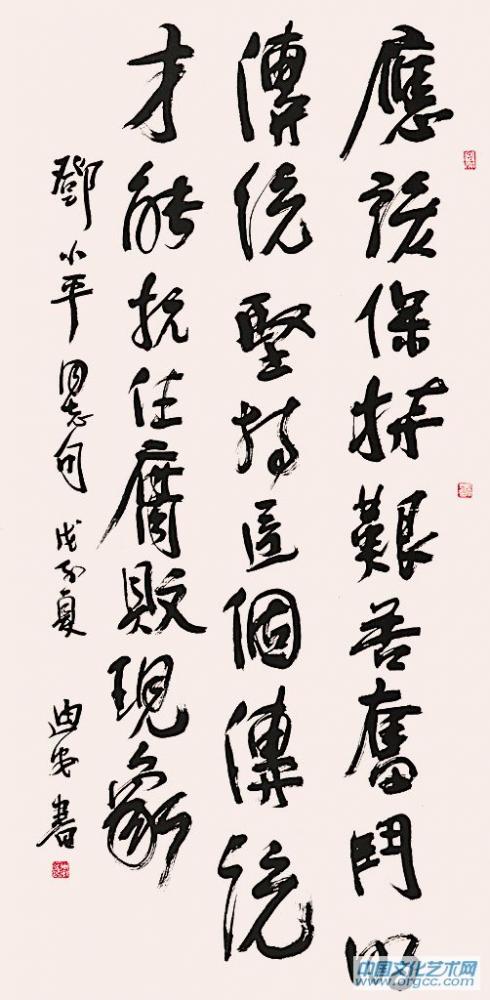 應該保持艱苦奮鬥的
傳統堅持這個傳統
才能抗住腐敗現象
鄧小平同志句 戊子夏 書
中国文化艺术网
www.orgcc.com